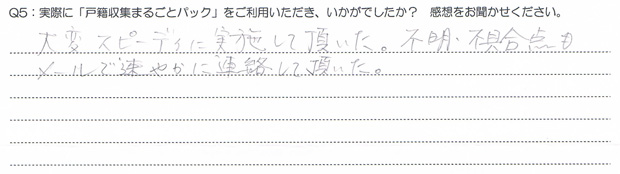 Q5：実際に「戸籍収集まるごとパック」をご利用いただき、いかがでしたか？　感想をお聞かせください。
大変スピーディに実施して頂いた。不明・不具合点も
メールで速やかに連絡して頂いた。